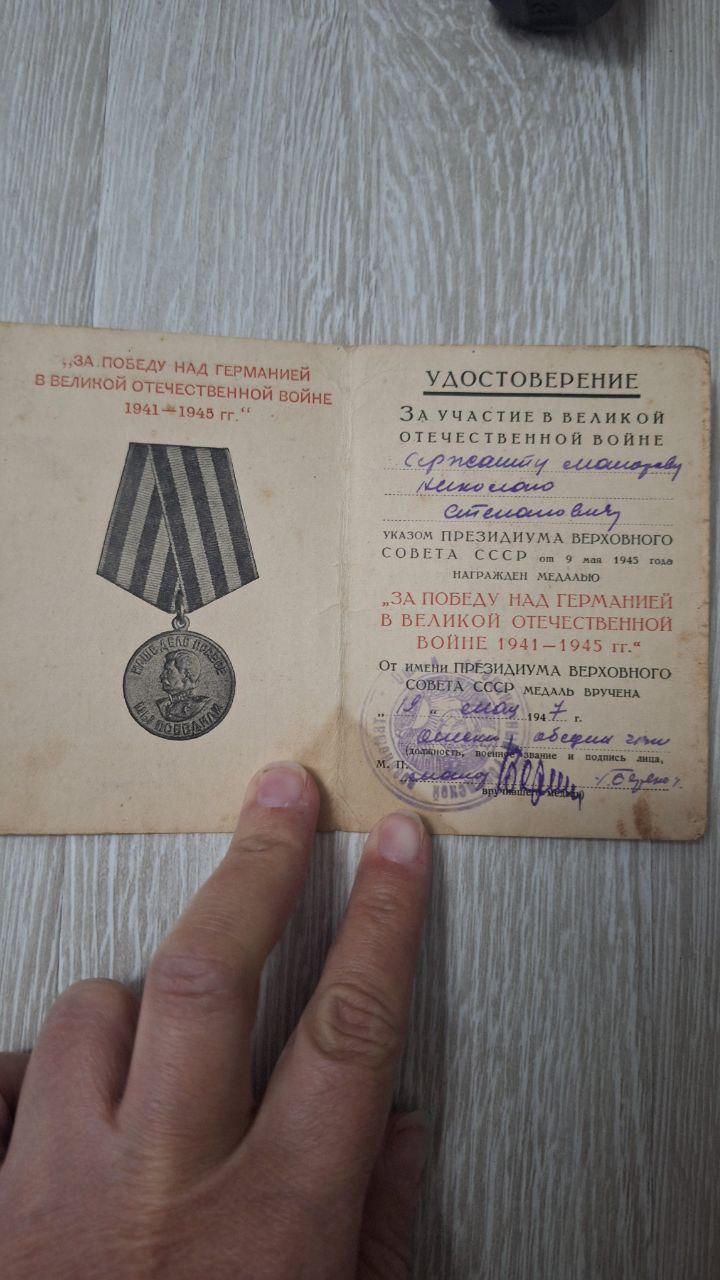 „ЗА ПОБЕДУ НАД ГЕРМАНИЕЙ
В ВЕЛИКОЙ ОТЕЧЕСТВЕННОЙ ВОЙНЕ
1941—1945 гг.“
НАШЕ ДЕЛО ПРАВОЕ
МЫ ПОБЕДИЛИ
УДОСТОВЕРЕНИЕ
ЗА УЧАСТИЕ В ВЕЛИКОЙ
ОТЕЧЕСТВЕННОЙ ВОЙНЕ
Сержанту
Николаю
Степановичу
УКАЗОМ ПРЕЗИДИУМА ВЕРХОВНОГО
СОВЕТА СССР от 9 мая 1945 года
НАГРАЖДЕН МЕДАЛЬЮ
„ЗА ПОБЕДУ НАД ГЕРМАНИЕЙ
В ВЕЛИКОЙ ОТЕЧЕСТВЕННОЙ
ВОЙНЕ 1941—1945 гг.“
От имени ПРЕЗИДИУМА ВЕРХОВНОГО
СОВЕТА СССР МЕДАЛЬ ВРУЧЕНА
„19“ мая 1947 г.
(должность, военное звание и подпись лица,
М. П.
вручившего медаль)